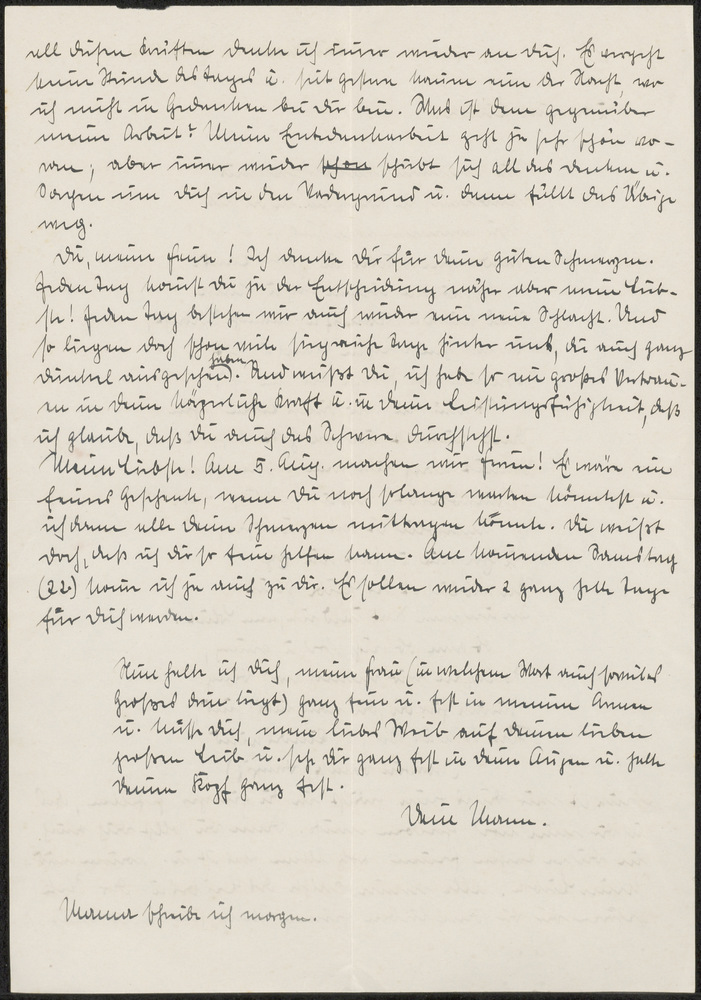 all diesen Kräften denke ich immer wieder an Dich. Es vergeht
keine Stunde des Tages u. seit gestern kaum eine der Nacht, wo
ich nicht in Gedanken bei Dir bin. Was ist dem gegenüber
meine Arbeit? Meine Entedankarbeit geht ja sehr schön vo-
ran; aber immer wieder schon schiebt sich all das Denken u.
Sorgen um Dich in den Vordergrund u. dann fällt das Übrige
weg.
Du, meine feine! Ich danke Dir für Deine guten Schmerzen.
Jeden Tag kommst Du ja der Entscheidung näher aber meine Lieb-
ste! Jeden Tag bestehen wir auch wieder eine neue Schlacht. Und
so liegen doch schon viele siegreiche Tage hinter uns, die auch ganz
dunkel ausgesehen haben. Und weißt Du, ich habe so ein großes Vertrau-
en in Deine körperliche Kraft u. in Deine Leistungsfähigkeit, daß
ich glaube, daß Du auch das Schwere durchstehst.
Meine Liebste! Am 5. Aug. machen wir Ferien! Es wäre ein
feines Geschenk, wenn Du noch solange warten könntest u.
ich dann alle Deine Schmerzen mittragen könnte. Du weißt
doch, daß ich Dir so fein helfen kann. Am kommenden Samstag
(22.) komm ich ja auch zu Dir. Es sollen wieder 2 ganz helle Tage
für Dich werden.
Nun halte ich Dich, meine Frau (in welchem Wort auch soviel
Großes drin liegt) ganz fein u. fest in meinen Armen
u. küsse Dich, mein liebes Weib auf Deinen lieben
großen Leib u. sehe Dir ganz fest in Deine Augen u. halte
Deinen Kopf ganz fest.
Dein Mann.
Mama schreibe ich morgen.